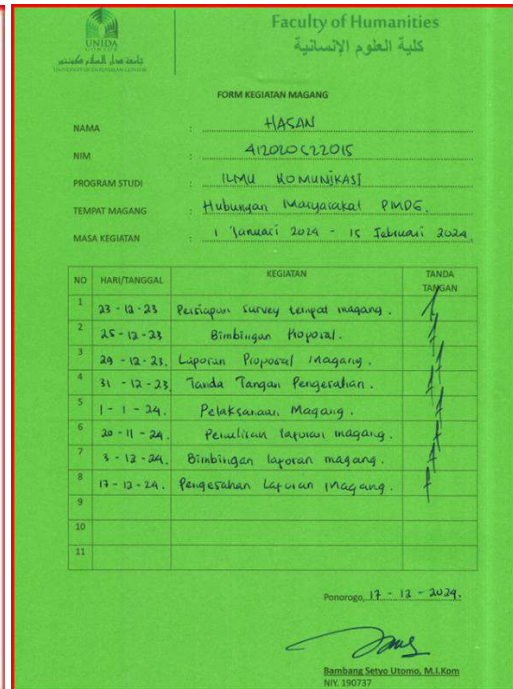 UNIDA
GONTOR
UNIVERSITY OF DARUSSALAM GONTOR
Faculty of Humanities
كلية العلوم الإنسانية
FORM KEGIATAN MAGANG
NAMA : HASAN
NIM :
PROGRAM STUDI : ILMU KOMUNIKASI
TEMPAT MAGANG : Hubungan Masyarakat PMDG.
MASA KEGIATAN : 1 Januari 2024 - 15 Februari 2024
NO HARI/TANGGAL KEGIATAN TANDA TANGAN
1 23 - 12 - 23 Persiapan survey tempat magang.
2 25 - 12 - 23 Bimbingan Proposal.
3 29 - 12 - 23. Laporan Proposal Magang.
4 31 - 12 - 23 Tanda Tangan Pengesahan.
5 1 - 1 - 24. Pelaksanaan Magang.
6 20 - 11 - 24. Penulisan laporan magang.
7 3 - 12 - 24. Bimbingan laporan magang.
8 17 - 12 - 24. Pengesahan Laporan Magang.
9
10
11
Ponorogo, 17 - 12 - 2024.
Bambang Setyo Utomo, M.I.Kom
NIY. 190737